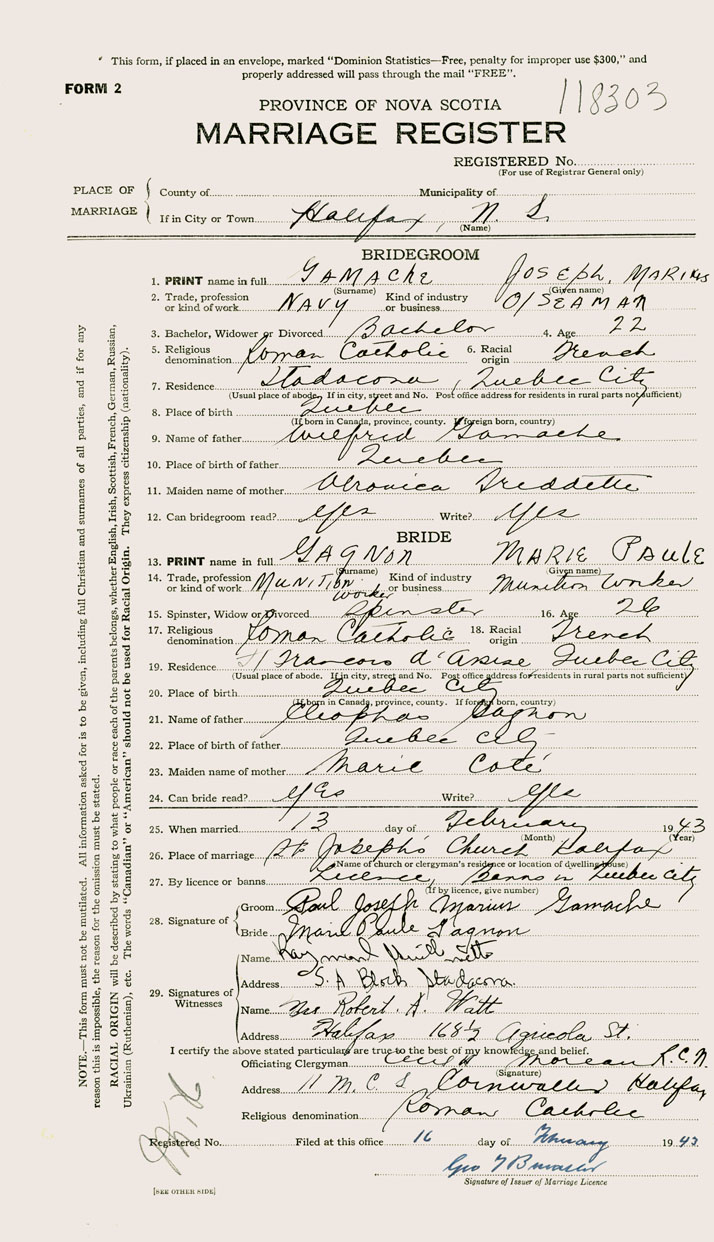 This form, if placed in an envelope, marked "Dominion Statistics—Free, penalty for improper use $300," and
properly addressed will pass through the mail "FREE".
FORM 2
118303
PROVINCE OF NOVA SCOTIA
MARRIAGE REGISTER
REGISTERED No.
(For use of Registrar General only)
PLACE OF MARRIAGE
County of Municipality of
If in City or Town Halifax, N. S.
(Name)
BRIDEGROOM
1. PRINT name in full GAMACHE JOSEPH, MARIUS
(Surname) (Given name)
2. Trade, profession or kind of work NAVY Kind of industry or business O/SEAMAN
3. Bachelor, Widower or Divorced Bachelor 4. Age 22
5. Religious denomination Roman Catholic 6. Racial origin French
7. Residence Stadacona, Quebec City
(Usual place of abode. If in city, street and No. Post office address for residents in rural parts not sufficient)
8. Place of birth Quebec
(If born in Canada, province, county. If foreign born, country)
9. Name of father Wilfrid Gamache
10. Place of birth of father Quebec
11. Maiden name of mother Veronica
12. Can bridegroom read? Yes Write? Yes
BRIDE
13. PRINT name in full GAGNON MARIE PAULE
(Surname) (Given name)
14. Trade, profession or kind of work MUNITION worker Kind of industry or business Munition Worker
15. Spinster, Widow or Divorced Spinster 16. Age 26
17. Religious denomination Roman Catholic 18. Racial origin French
19. Residence St Francois d'Assise, Quebec City
(Usual place of abode. If in city, street and No. Post office address for residents in rural parts not sufficient)
20. Place of birth Quebec City
(If born in Canada, province, county. If foreign born, country)
21. Name of father Cleophas Gagnon
22. Place of birth of father Quebec City
23. Maiden name of mother Marie Coté
24. Can bride read? Yes Write? Yes
25. When married 13 day of February 1943
(Month) (Year)
26. Place of marriage St Joseph's Church Halifax
(Name of church or clergyman's residence or location of dwelling house)
27. By licence or banns Licence, Banns in Quebec City
(If by licence, give number)
28. Signature of
Groom Paul Joseph Marius Gamache
Bride Marie Paule Gagnon
29. Signatures of Witnesses
Name Raymond
Address S.A Block Stadacona.
Name Mrs Robert. A. Watt
Address Halifax 168½ Agricola St.
I certify the above stated particulars are true to the best of my knowledge and belief.
Officiating Clergyman Moreau R.C.N.
(Signature)
Address H M. C S Cornwallis Halifax
Religious denomination Roman Catholic
Registered No. Filed at this office 16 day of February 1943
Geo
Signature of Issuer of Marriage Licence
[SEE OTHER SIDE]
NOTE.—This form must not be mutilated. All information asked for is to be given, including full Christian and surnames of all parties, and if for any
reason this is impossible, the reason for the omission must be stated.
RACIAL ORIGIN will be described by stating to what people or race each of the parents belongs, whether English, Irish, Scottish, French, German, Russian,
Ukrainian (Ruthenian), etc. The words "Canadian" or "American" should not be used for Racial Origin. They express citizenship (nationality).